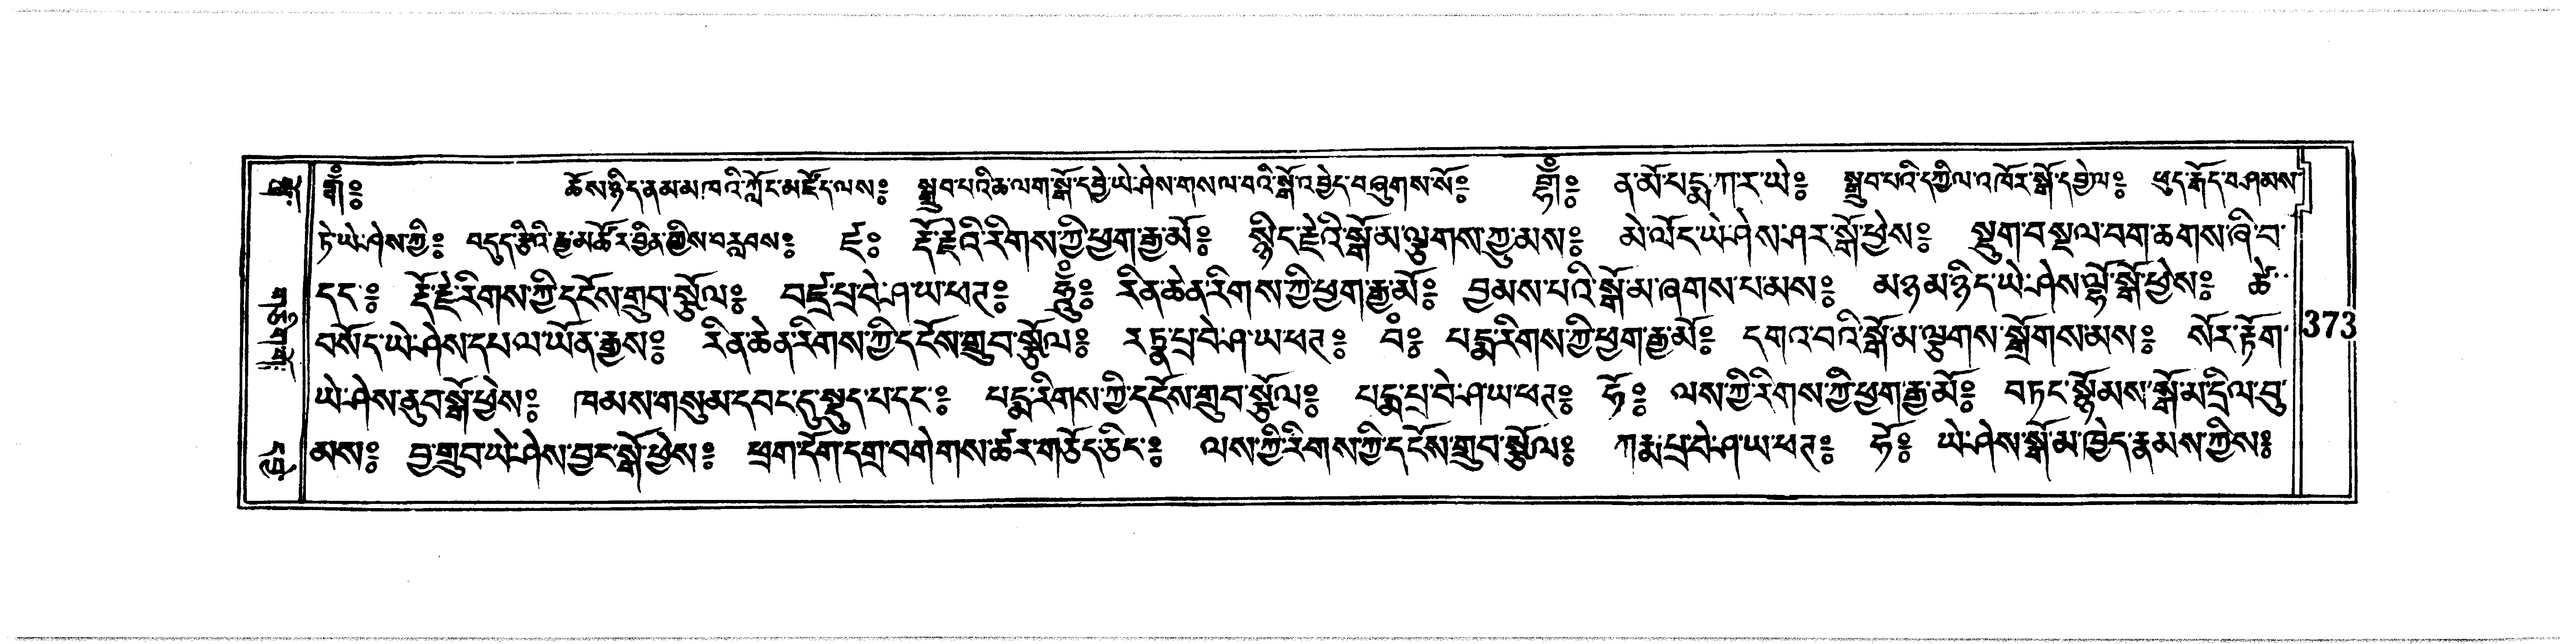 ཆོས་ཉིད་ནམ་མཁའི་ཀློང་མཛོད་ལས༔ སྒྲུབ་པའི་ཆ་ལག་སྒོ་དབྱེ་ཡེ་ཤེས་གསལ་བའི་སྒོ་འབྱེད་བཞུགས་སོ༔ ན་མོ་པདྨ་ཀཱ་ར་ཡེ༔ སྒྲུབ་པའི་དཀྱིལ་འཁོར་སྒོ་དབྱེ་ལ༔ ཕུད་རྒོད་བཤམས་
ཏེ་ཡེ་ཤེས་ཀྱི༔ བདུད་རྩིའི་རྒྱ་མཚོར་བྱིན་གྱིས་བརླབས༔ ཛཿ རྡོ་རྗེའི་རིགས་ཀྱི་ཕྱག་རྒྱ་མོ༔ སྙིང་རྗེའི་སྒོ་མ་ལྕགས་ཀྱུ་མས༔ མེ་ལོང་ཡེ་ཤེས་ཤར་སྒོ་ཕྱེས༔ སྡུག་བསྔལ་བག་ཆགས་ཞི་བ་
དང་༔ རྡོ་རྗེ་རིགས་ཀྱི་དངོས་གྲུབ་སྩོལ༔ བཛྲ་པྲ་བེ་ཤ་ཡ་ཕཊ༔ ཧཱུྃ༔ རིན་ཆེན་རིགས་ཀྱི་ཕྱག་རྒྱ་མོ༔ བྱམས་པའི་སྒོ་མ་ཞགས་པ་མས༔ མཉམ་ཉིད་ཡེ་ཤེས་ལྷོ་སྒོ་ཕྱེས༔ ཚེ་
བསོད་ཡེ་ཤེས་དཔལ་ཡོན་རྒྱས༔ རིན་ཆེན་རིགས་ཀྱི་དངོས་གྲུབ་སྩོལ༔ རཏྣ་པྲ་བེ་ཤ་ཡ་ཕཊ༔ བཾ༔ པདྨ་རིགས་ཀྱི་ཕྱག་རྒྱ་མོ༔ དགའ་བའི་སྒོ་མ་ལྕགས་སྒྲོགས་མས༔ སོར་རྟོག་
373
ཡེ་ཤེས་ནུབ་སྒོ་ཕྱེས༔ ཁམས་གསུམ་དབང་དུ་སྡུད་པ་དང་༔ པདྨ་རིགས་ཀྱི་དངོས་གྲུབ་སྩོལ༔ པདྨ་པྲ་བེ་ཤ་ཡ་ཕཊ༔ ཧོ༔ ལས་ཀྱི་རིགས་ཀྱི་ཕྱག་རྒྱ་མོ༔ བཏང་སྙོམས་སྒོ་མ་དྲིལ་བུ་
མས༔ བྱ་གྲུབ་ཡེ་ཤེས་བྱང་སྒོ་ཕྱེས༔ ཕྲག་དོག་དགྲ་བགེགས་ཚར་གཅོད་ཅིང་༔ ལས་ཀྱི་རིགས་ཀྱི་དངོས་གྲུབ་སྩོལ༔ ཀརྨ་པྲ་བེ་ཤ་ཡ་ཕཊ༔ ཧོ༔ ཡེ་ཤེས་སྒོ་མ་ཁྱེད་རྣམས་ཀྱིས༔